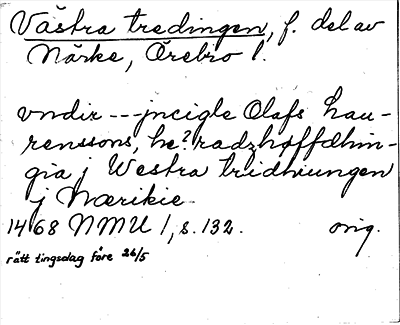 Västra tredingen, f. del av
Närke, Örebro l.
vndir --- jncigle Olafs Lau-
renssons, he? radzhøffdhin-
gia j Westra tridhiungen
j Nærikie
1468 NMU 1, s. 132. orig.
rätt tingsdag före 26/5